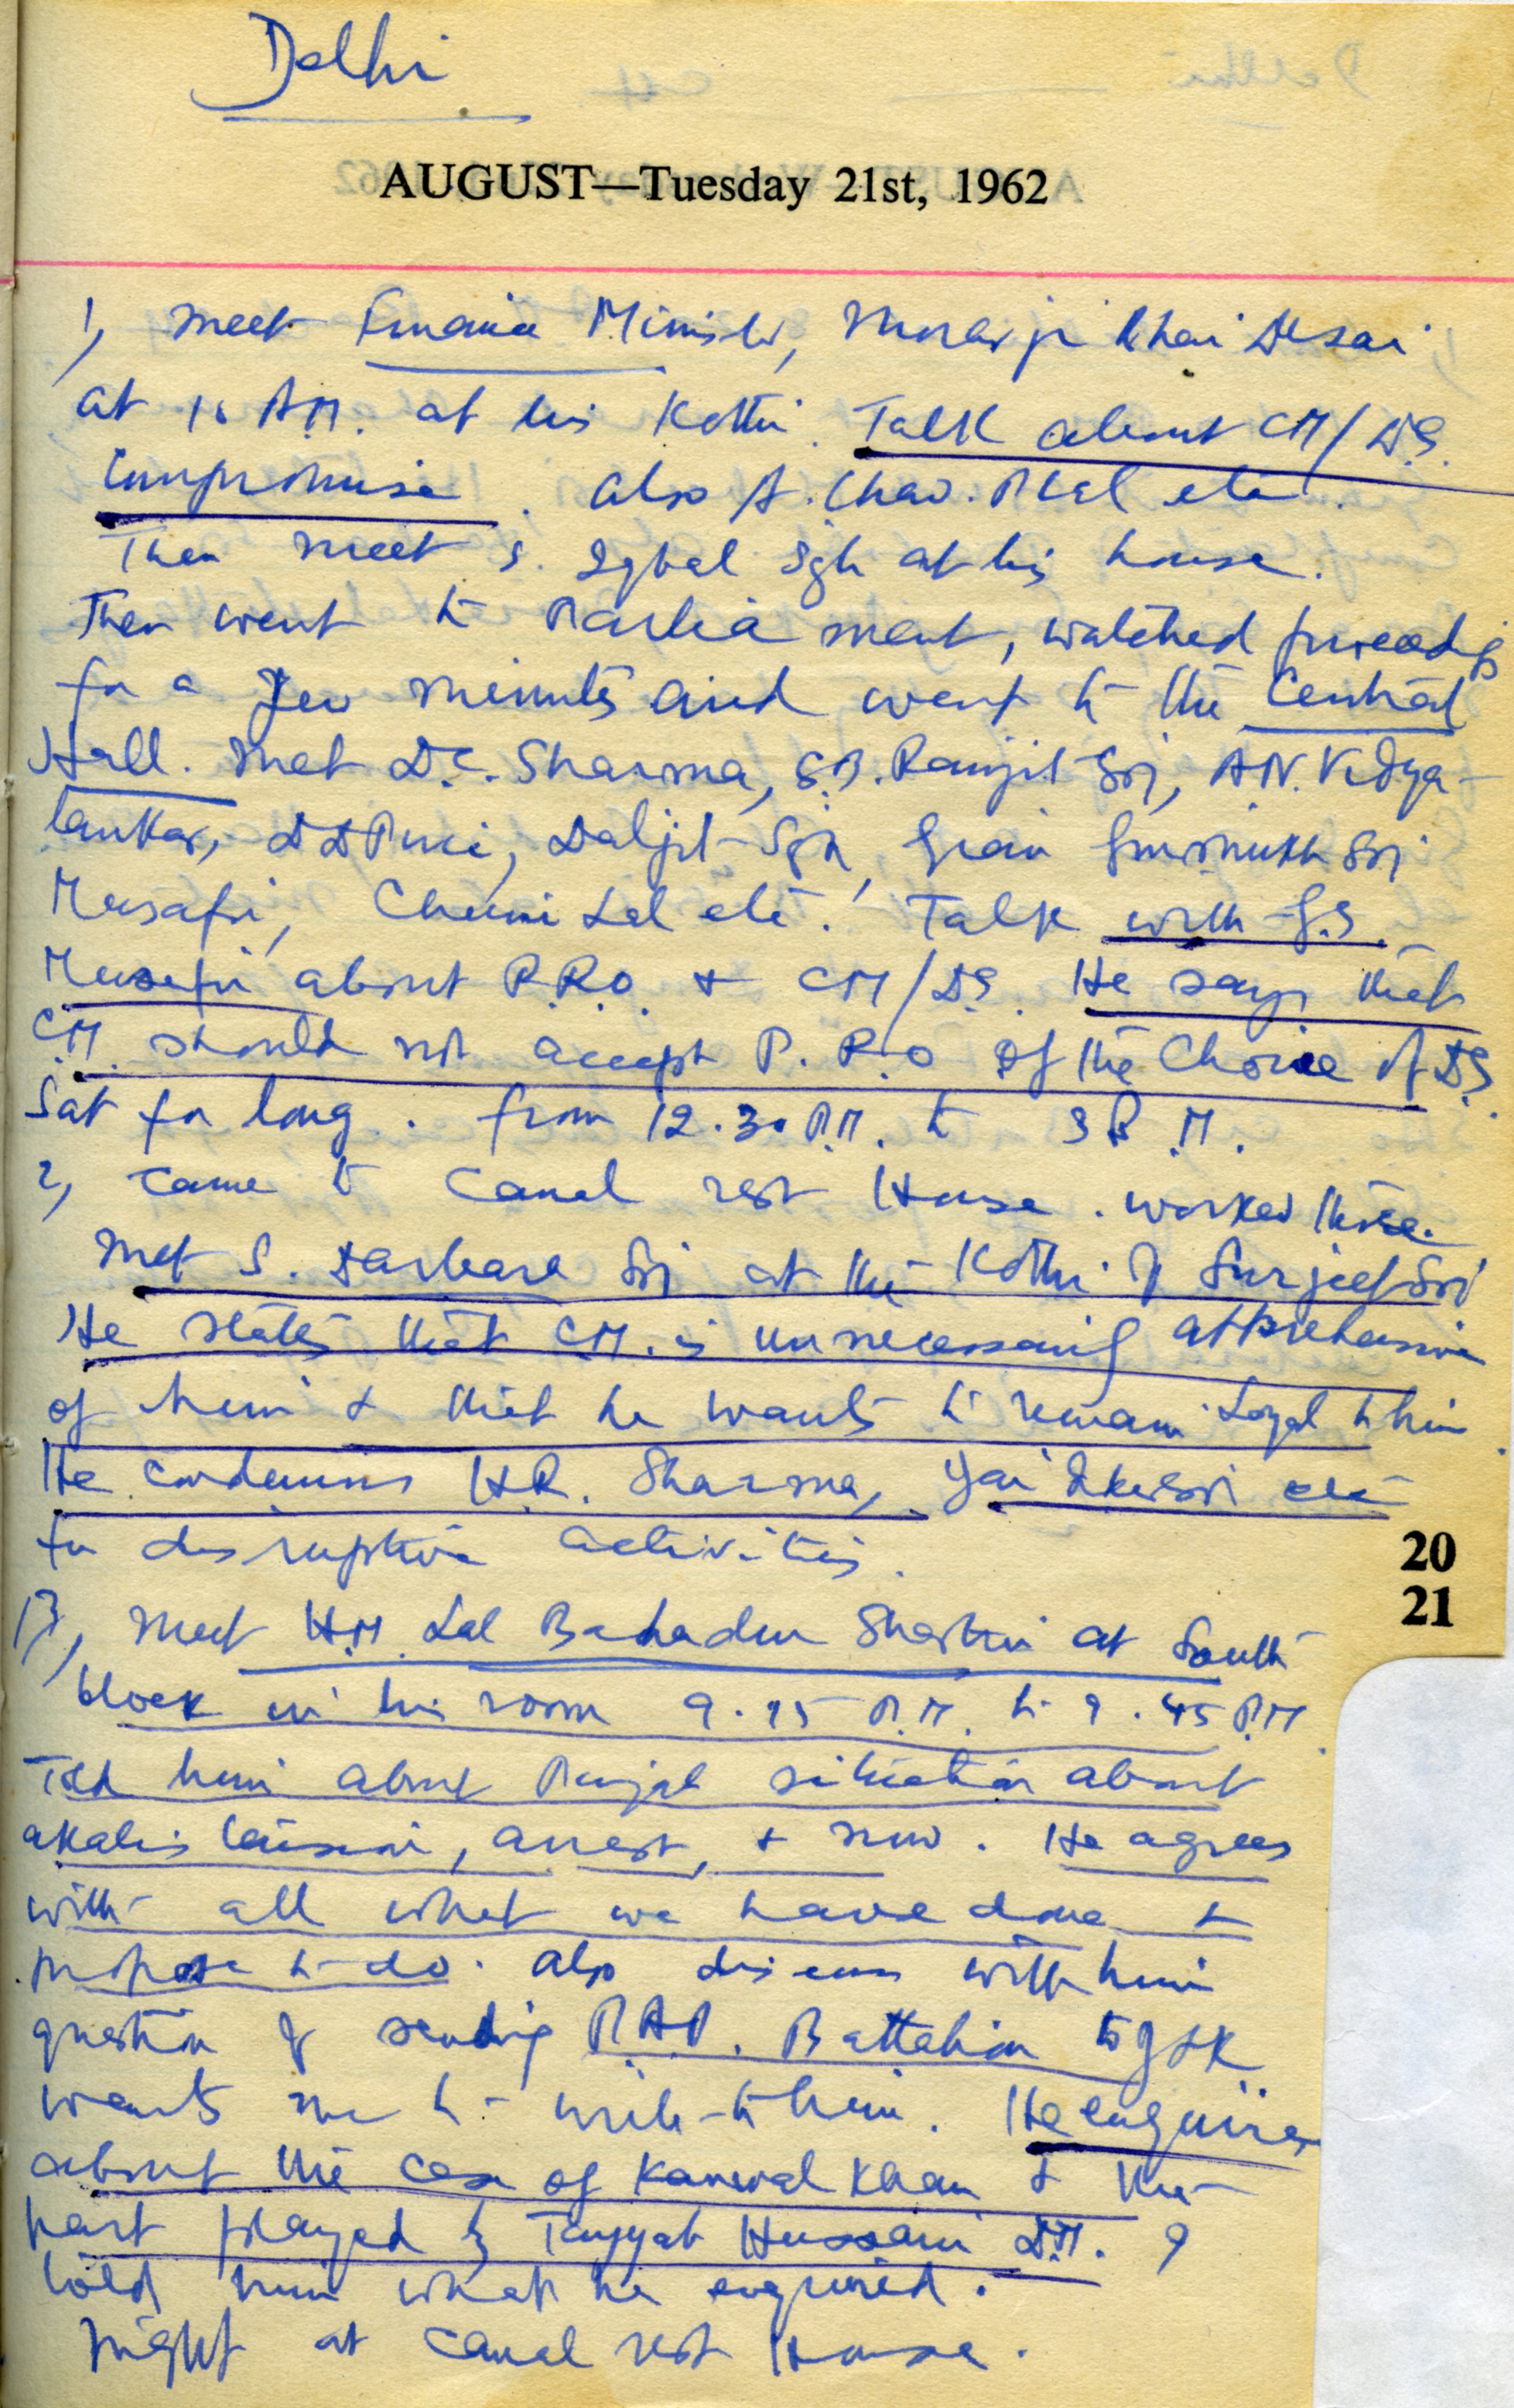 Delhi
AUGUST—Tuesday 21st, 1962
1, meet Finance Minister, Morarji bhai Desai
at 10 A.M. at his Kothi. Talk about CM/D.S.
Compromise. also A. Chav. Plal etc.
Then meet S. Iqbal Sgh at his house.
Then went to Parliament, watched proceedgs
for a few minutes and went to the Central
Hall. Met D.C. Sharma, S.B. Ranjit Sri, A.N. Vidya-
lankar, D D Puri, Daljit Sgh, Giani Gurmukh Sri
Musafir, Chuni Lal etc. Talk with G.S.
Musafir about P.R.O. + CM/DS. He says that
C.M. should not accept P.R.O of the Choice of D.S.
Sat for long. from 12.30 P.M. to 3 P.M.
2, came to Canal rest House. worked there.
Met S. Darbara Sri at the Kothi of Surjeet Sri
He states that C.M. is unnecessarily apprehensive
of him & that he wants to remain Loyal to him.
He condemns H.R. Sharma, etc
for disruptive activities.
20
21
13, meet H.M. Lal Bahadur Shastri at South
block in his room 9.15 P.M. to 9.45 P.M.
Told him about Punjab situation about
akalis arrest, & now. He agrees
with all what we have done &
propose to do. also discuss with him
question of sending P.A.P. Battalion to J&K
wants me to write to him. He enquires
about the case of Kanwal Khan & the
part played by Tayyab Hussain D.M. ?
told him what he enquired.
Night at canal rest House.